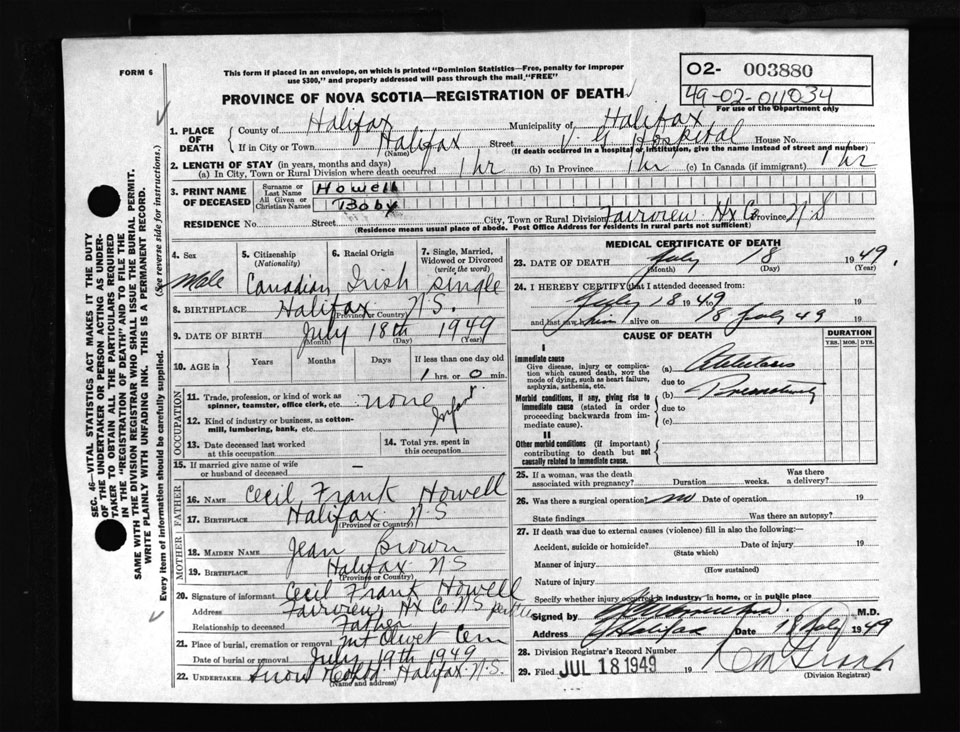 FORM 6
This form if placed in an envelope, on which is printed "Dominion Statistics—Free, penalty for improper
use $300," and properly addressed will pass through the mail "FREE"
PROVINCE OF NOVA SCOTIA—REGISTRATION OF DEATH
02- 003880
49-02-011034
For use of the Department only
1. PLACE OF DEATH
County of Halifax Municipality of Halifax
If in City or Town Halifax Street V. G. Hospital House No.
(Name) (If death occurred in a hospital or institution, give the name instead of street and number)
2. LENGTH OF STAY (in years, months and days)
(a) In City, Town or Rural Division where death occurred 1 hr (b) In Province 1 hr (c) In Canada (if immigrant) 1 hr
3. PRINT NAME OF DECEASED
Surname or Last Name Howell
All Given or Christian Names Baby
RESIDENCE No. Street City, Town or Rural Division Fairview Hx Co Province N S
(Residence means usual place of abode. Post Office Address for residents in rural parts not sufficient)
4. Sex Male
5. Citizenship (Nationality) Canadian
6. Racial Origin Irish
7. Single, Married, Widowed or Divorced (write the word) single
8. BIRTHPLACE Halifax N.S.
(Province or Country)
9. DATE OF BIRTH July 18th 1949
(Month) (Day) (Year)
10. AGE in Years Months Days If less than one day old
1 hrs. or 0 min.
OCCUPATION
11. Trade, profession, or kind of work as
spinner, teamster, office clerk, etc. none
12. Kind of industry or business, as cotton-
mill, lumbering, bank, etc. Infant
13. Date deceased last worked
at this occupation
14. Total yrs. spent in
this occupation
15. If married give name of wife
or husband of deceased —
FATHER
16. NAME Cecil Frank Howell
17. BIRTHPLACE Halifax N S
(Province or Country)
MOTHER
18. MAIDEN NAME Jean Brown
19. BIRTHPLACE Halifax N S
(Province or Country)
20. Signature of informant Cecil Frank Howell
Address Fairview Hx Co N S
Relationship to deceased Father
21. Place of burial, cremation or removal Mt Olivet Cem
Date of burial or removal July 19th 1949
22. UNDERTAKER Snow Halifax N.S.
(Name and address)
MEDICAL CERTIFICATE OF DEATH
23. DATE OF DEATH July 18 1949.
(Month) (Day) (Year)
24. I HEREBY CERTIFY that I attended deceased from:
July 18 1949 19
and last saw him alive on 18 July 49 19
CAUSE OF DEATH
DURATION
YRS. MOS. DYS.
I
Immediate cause
Give disease, injury or complication which caused death, not the mode of dying, such as heart failure, asphyxia, asthenia, etc.
(a) Atelectasis
due to
(b) Prematurity
Morbid conditions, if any, giving rise to immediate cause (stated in order proceeding backwards from immediate cause).
due to
(c)
II
Other morbid conditions (if important) contributing to death but not causally related to immediate cause.
25. If a woman, was the death
associated with pregnancy? Duration weeks. Was there a delivery?
26. Was there a surgical operation? no Date of operation 19
State findings Was there an autopsy?
27. If death was due to external causes (violence) fill in also the following:
Accident, suicide or homicide? Date of injury 19
(State which)
Manner of injury
(How sustained)
Nature of injury
Specify whether injury occurred in industry, in home, or in public place
Signed by M.D.
Address Halifax Date 18 July 1949
28. Division Registrar's Record Number
29. Filed JUL 18 1949 19
(Division Registrar)
SEC. 46—VITAL STATISTICS ACT MAKES IT THE DUTY
OF THE UNDERTAKER OR PERSON ACTING AS UNDER-
TAKER TO OBTAIN ALL THE PARTICULARS REQUIRED
IN THE "REGISTRATION OF DEATH" AND TO FILE THE
SAME WITH THE DIVISION REGISTRAR WHO SHALL ISSUE THE BURIAL PERMIT.
WRITE PLAINLY WITH UNFADING INK. THIS IS A PERMANENT RECORD.
Every item of information should be carefully supplied. (See reverse side for instructions.)